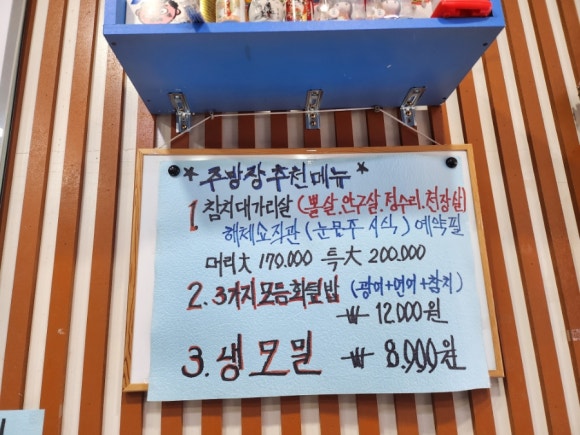 * 주방장추천메뉴 *
1 참치대가리살 (뽈살.안구살.정수리.천장살)
해체쇼직관 (눈물주 시식,) 예약필
머리大 170.000 특大 200.000
2. 3가지모듬회덮밥 (광어+연어+참치)
₩ 12.000원
3. 냉모밀 ₩ 8.900원